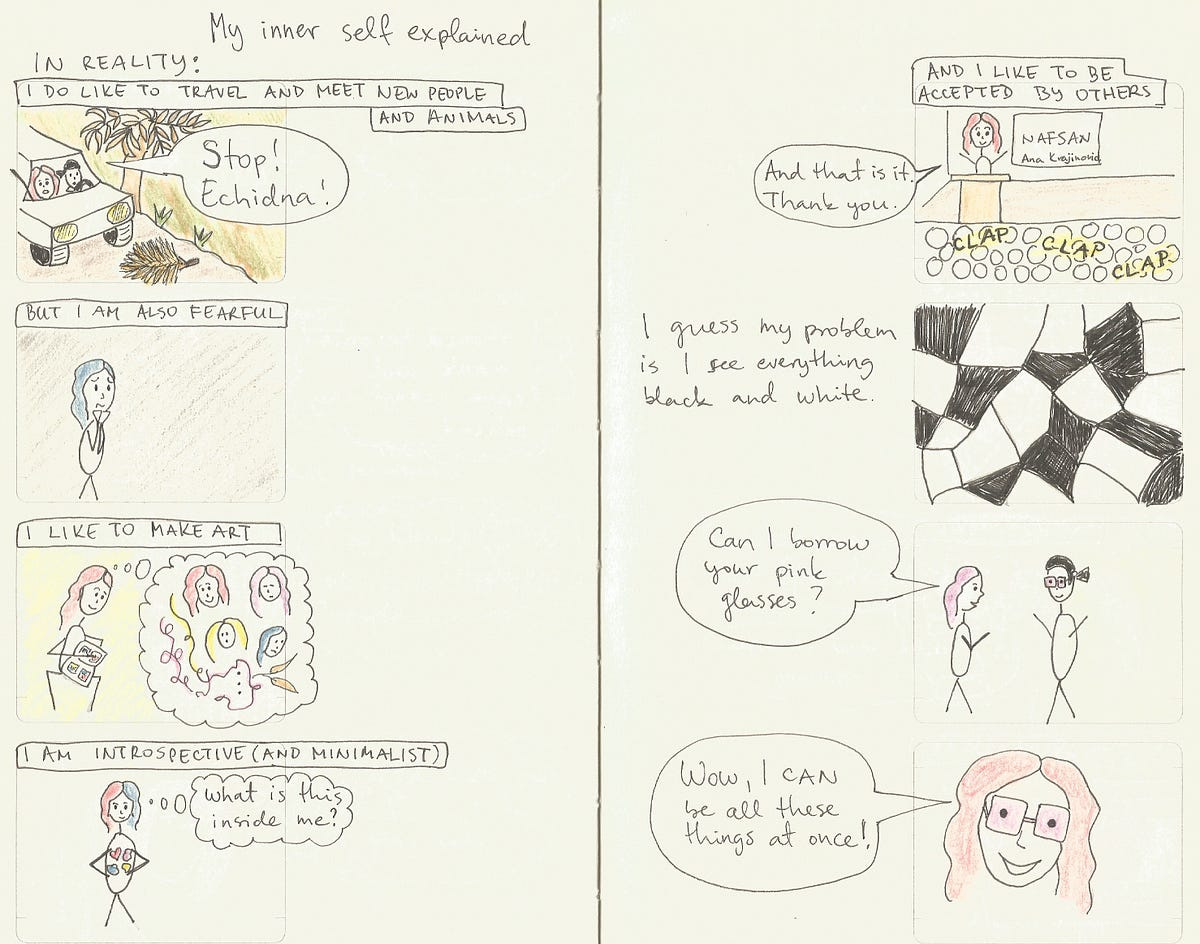 My inner self explained
IN REALITY:
I DO LIKE TO TRAVEL AND MEET NEW PEOPLE
AND ANIMALS
Stop!
Echidna!
BUT I AM ALSO FEARFUL
I LIKE TO MAKE ART
I AM INTROSPECTIVE (AND MINIMALIST)
What is this
inside me?
AND I LIKE TO BE
ACCEPTED BY OTHERS
NAFSAN
Ana Krajinović
And that is it.
Thank you.
CLAP
CLAP
CLAP
I guess my problem
is I see everything
black and white.
Can I borrow
your pink
glasses?
Wow, I CAN
be all these
things at once!